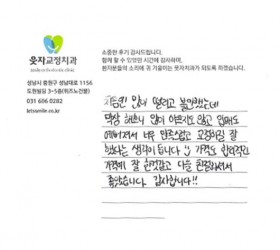 웃자교정치과
소중한 후기 감사드립니다.
함께 할 수 있었던 시간에 감사하며,
환자분들의 소리에 귀 기울이는 웃자치과가 되도록 하겠습니다.
성남시 중원구 성남대로 1156
도원빌딩 3~5층(위즈노건물)
031 606 0282
처음엔 많이 떨리고 불안했는데
막상 해보니 많이 아프지도 않고 입매도
예뻐져서 너무 만족스럽고 교정하길 잘
했다는 생각이 듭니다 가격도 합리적인
가격에 잘 한것같고 다들 친절하셔서
좋았습니다. 감사합니다!!